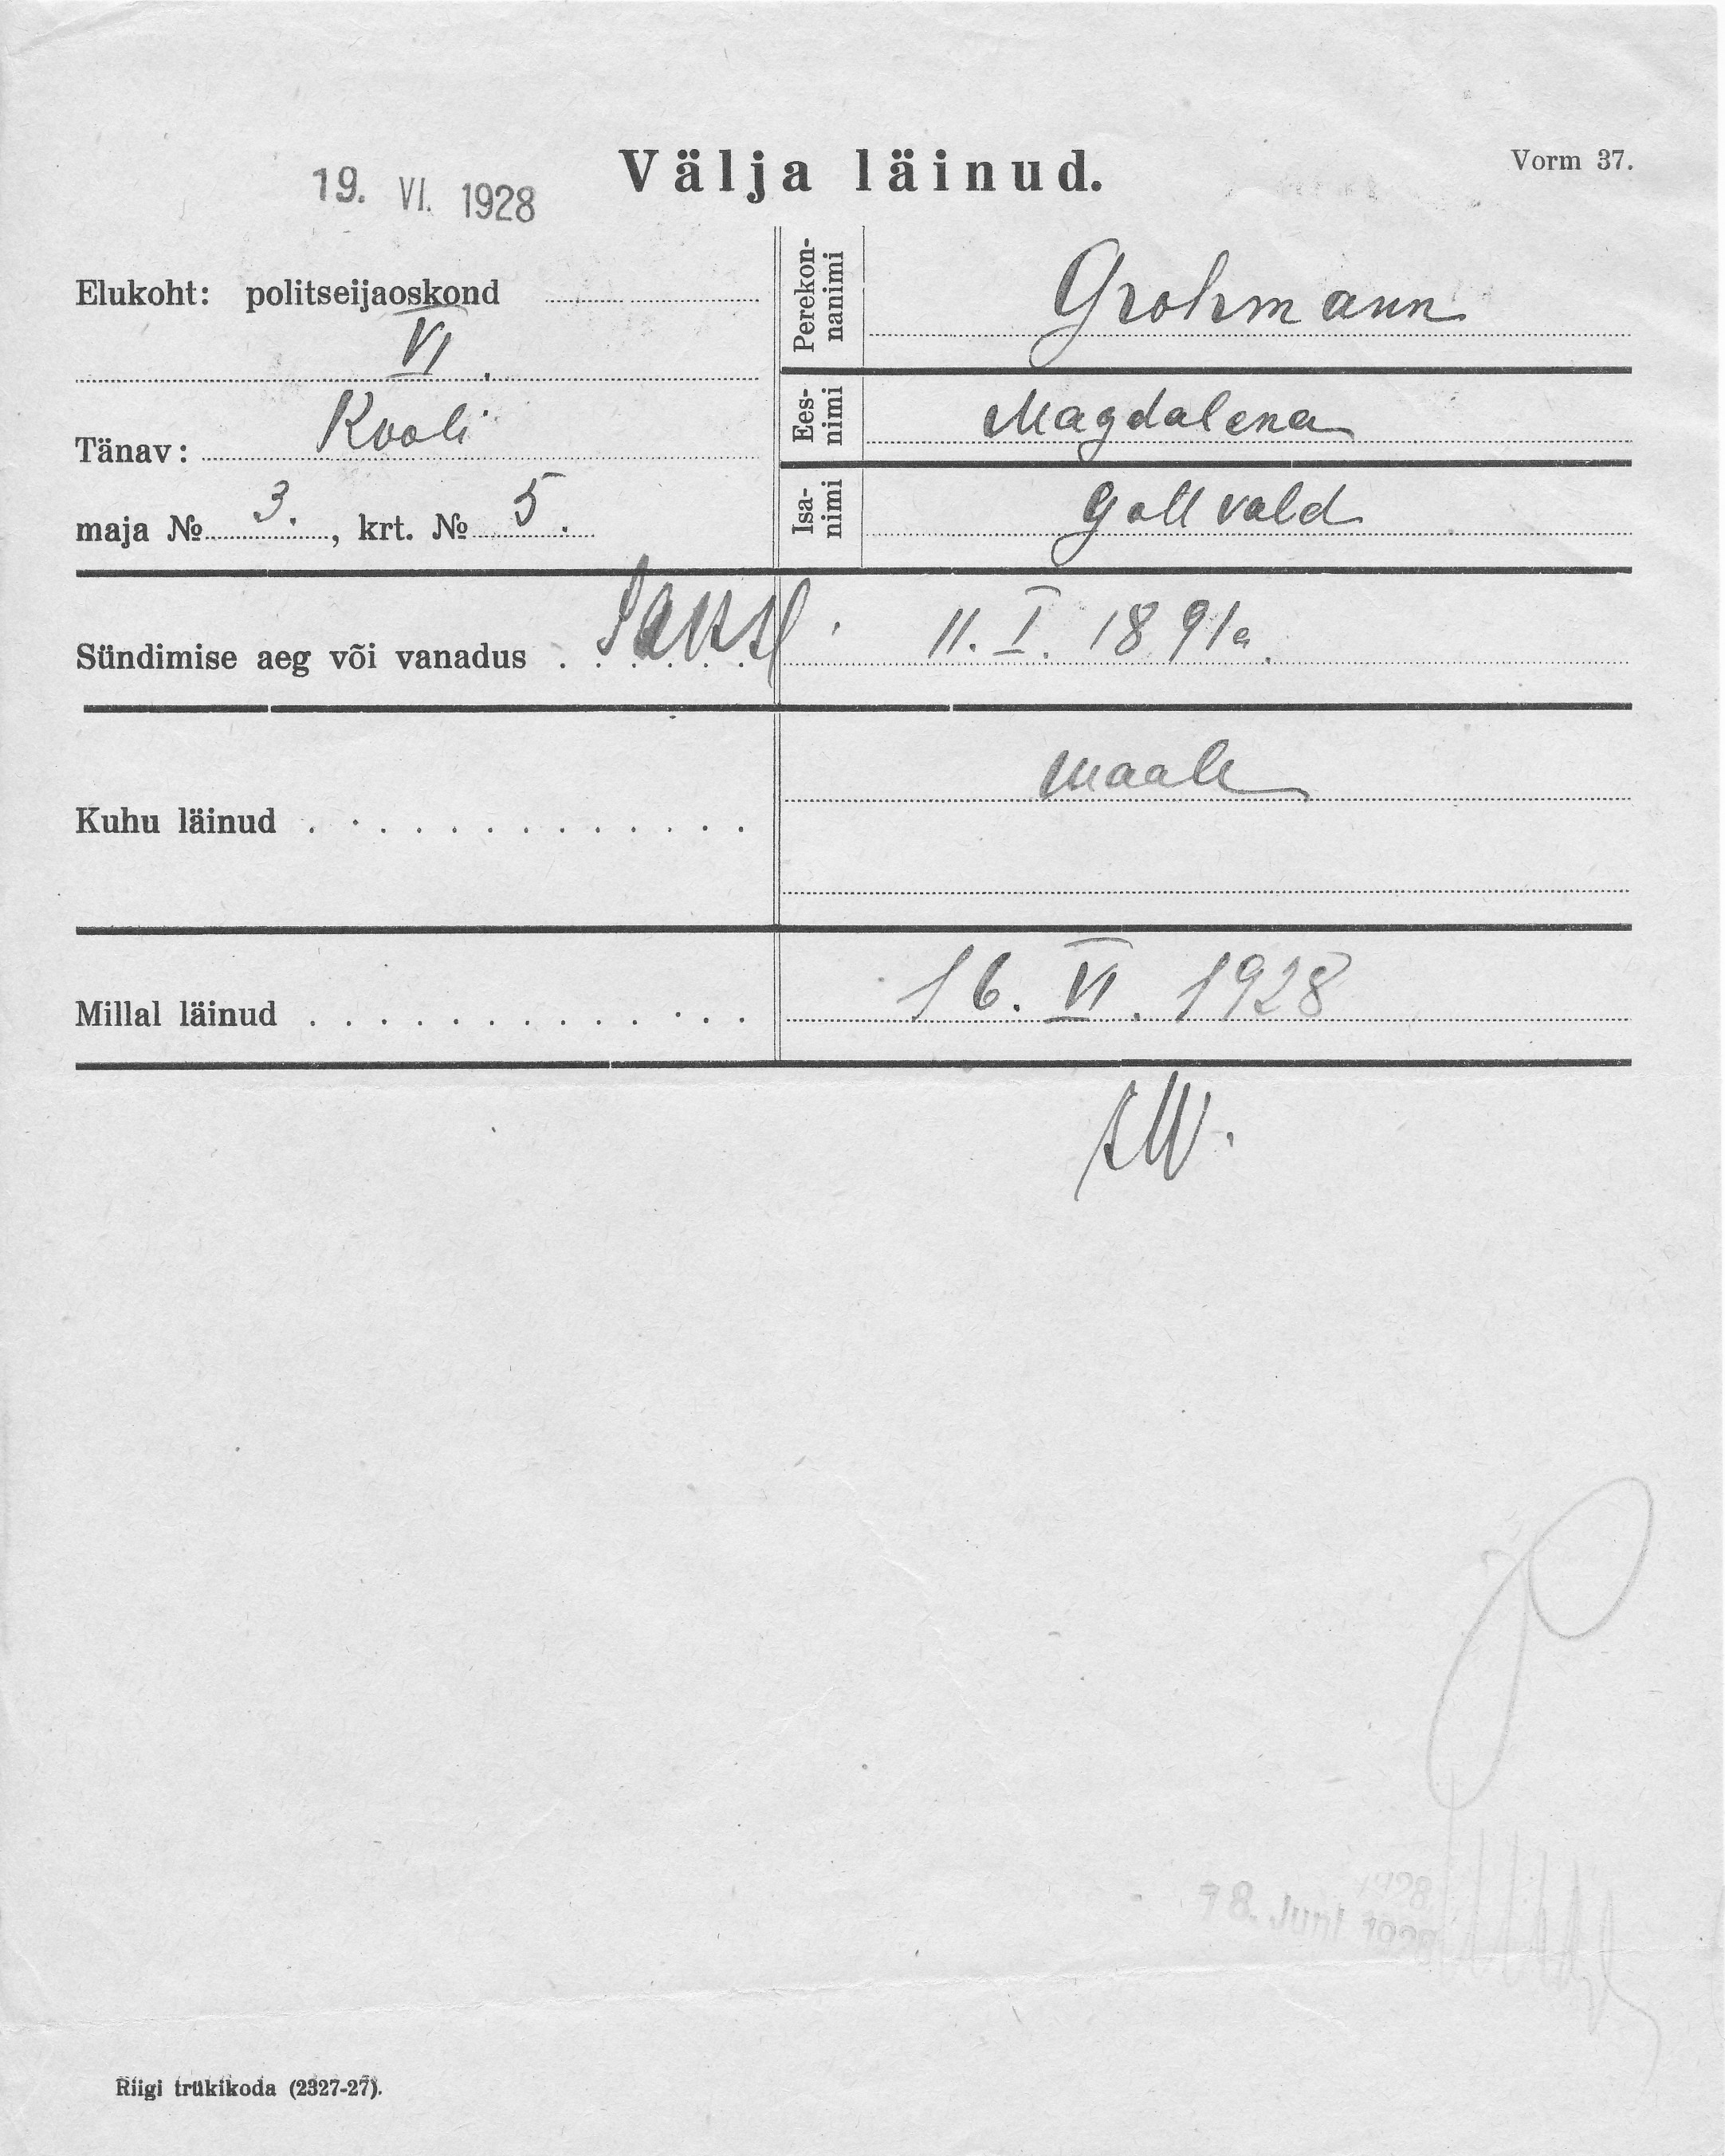 Välja läinud.
Vorm 37.
19. VI. 1928
Elukoht: politseijaoskond
VI.
Tänav: Kooli
maja № 3., krt. № 5.
Perekon-
nanimi
Grohmann
Ees-
nimi
Magdalena
Isa-
nimi
Gottvald
Sündimise aeg või vanadus
11. I. 1891 a.
Kuhu läinud
maale
Millal läinud
16. VI. 1928
18. Juni 1928
Riigi trükikoda (2327-27).